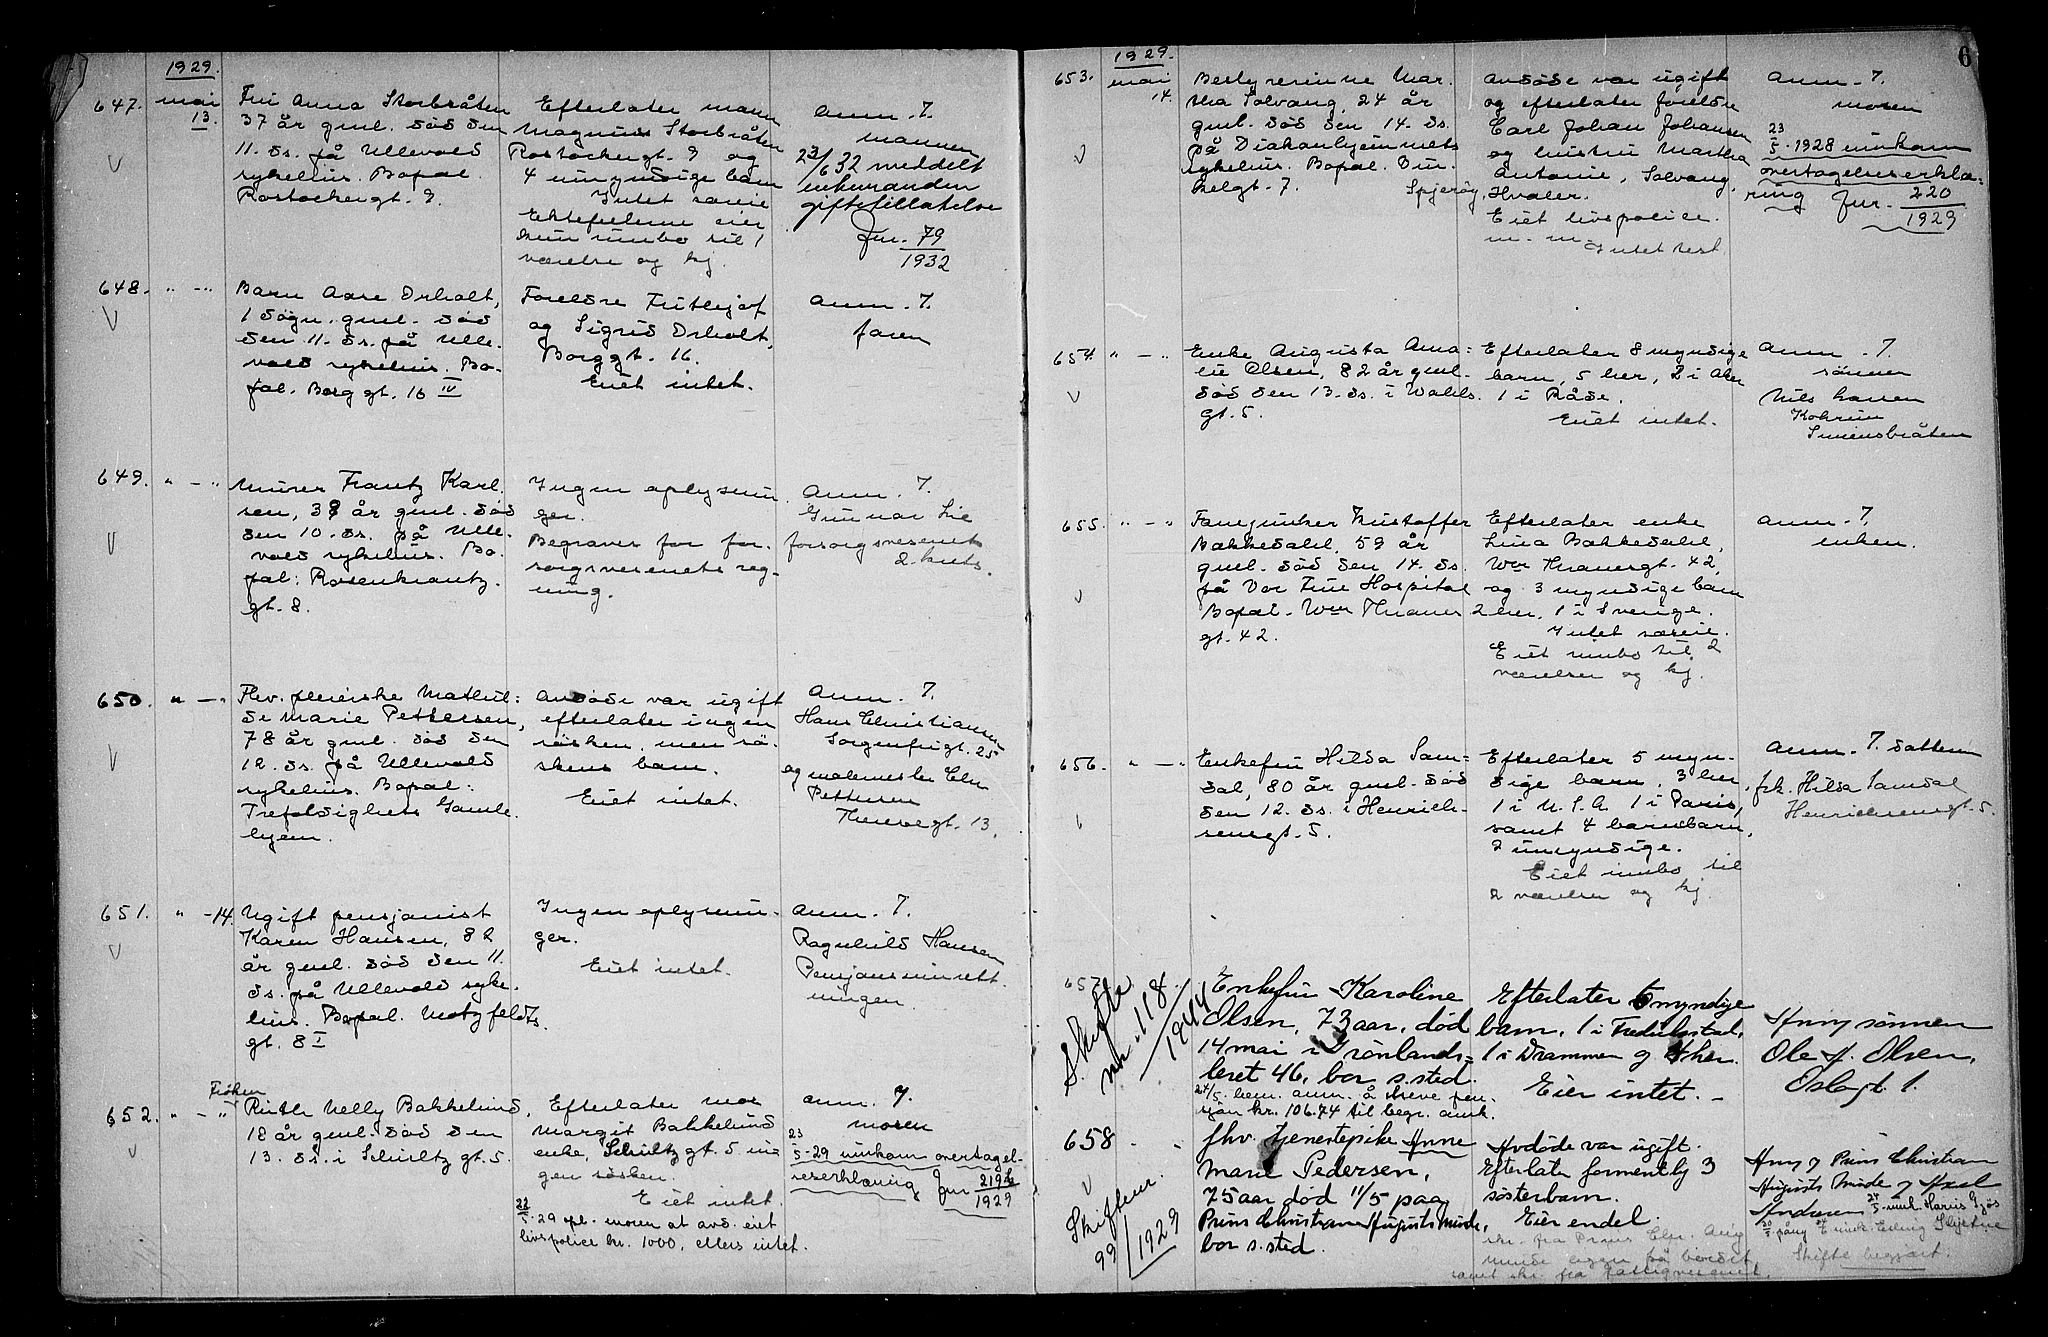 1929.
647. mai 13.
Fru Anna Storbråten
37 år gml. død den
11. ds. på Ullevold
sykehus. Bopal.
Rostockergt. 9.
Efterlater mann
Magnus Storbråten
Rostockergt. 9 og
4 umyndige barn
Intet særeie
Ektefellene eier
kun innbo til 1
værelse og kj.
Anm. 7.
mannen
23/6 32 meddelt
enkemanden
giftetillatelse
Jnr. 79
1932
648. " - "
Barn Aase Orholt,
1 døgn. gml. død
den 11. ds. på Ulle-
vold sykehus. Bo-
pal. Borg gt. 16 IV
Foreldre Frithjof
og Sigrid Orholt,
Borggt. 16.
Eiet intet.
Anm. 7.
faren
649. " - "
Murer Frantz Karl-
sen, 39 år gml. død
den 10. ds. på Ulle-
vold sykehus. Bo-
pal: Rosenkrantz-
gt. 8.
Ingen oplysnin-
ger.
Begraves for for-
sorgsvesenets reg-
ning.
Anm. 7.
Gunnar Lie
forsorgsvesenets
2. knts.
650. " - "
Fhv. pleierske Mathil-
de Marie Pettersen,
78 år gml. død den
12. ds. på Ullevold
sykehus. Bopal:
Trefoldighets Gamle-
hjem.
Avdøde var ugift
efterlater ingen
søsken, men sø-
skens barn.
Eiet intet.
Anm. 7.
Hans Christiansen
Sorgenfrigt. 25
og malermester Chr.
Pettersen
Theresegt. 13.
651. " - 14.
Ugift pensjonist
Karen Hansen, 82
år gml. død den 11.
ds. på Ullevold syke-
hus. Bopal. Motzfeldts
gt. 8 I
Ingen oplysnin-
ger.
Eiet intet.
Anm. 7.
Ragnhild Hansen
Pensjonsinnrett-
ningen.
652. " - "
Frøken
Ruth Nelly Bakkelund,
18 år gml. død den
13. ds. i Schultz gt. 5.
Efterlater mor
Margit Bakkelund
enke, Schultz gt. 5 in-
gen søsken.
Eiet intet.
22/5-29 opl. moren at avd. eiet
livspolice kr. 1000, ellers intet.
Anm. 7.
moren
23/5-29 innkom overtagel-
seserklæring Jnr. 219b
1929
6
1929.
653. mai 14.
Bestyrerinne Mar-
tha Solvang, 24 år
gml. død den 14. ds.
på Diakonhjemmets
sykehus. Bopal. Dun-
kelgt. 7.
Avdøde var ugift
og efterlater foreldre
Carl Johan Johansen
og hustru Martha
Antonie, Solvang,
Spjerøy, Hvaler.
Eiet livspolice.
m. m. Intet test.
Anm. 7.
moren
23/5-1928 innkom
overtagelseserklæ-
ring Jnr. 220
1929
654 " - "
Enke Augusta Ama-
lie Olsen, 82 år gml.
død den 13. ds. i Wahls
gt. 5.
Efterlater 8 myndige
barn, 5 her, 2 i Aker
1 i Råde.
Eiet intet.
Anm. 7.
sønnen
Nils
Simensbråten
655. " - "
Fanejunker Kristoffer
Bakkedahl, 59 år
gml. død den 14. ds.
på Vor Frue Hospital
Bopal. Wm Thranes
gt. 42.
Efterlater enke
Lina Bakkedahl,
Wm Thranesgt. 42,
og 3 myndige barn
2 her, 1 i Sverige.
Intet særeie.
Eiet innbo til 2
værelser og kj.
Anm. 7.
enken.
656. " - "
Enkefru Hilda Sam-
dal, 80 år gml. død
den 12. ds. i Henrich-
sensgt. 5.
Efterlater 5 myn-
dige barn, 3 her,
1 i U.S.A. 1 i Paris,
samt 4 barnebarn,
2 umyndige.
Eiet innbo til
2 værelser og kj.
Anm. 7. datteren
frk. Hilda Samdal
Henrichsensgt. 5.
657.
Skifte
nr. 118
1944
Enkefru Karoline
Olsen, 73 aar, død
14 mai i Grønlands-
leret 46, bor s. sted.
24/5. bem. anm. å heve pen-
sjon kr. 106.74 til begr. omk.
Efterlater 6 myndige
barn, 1 i Fredrikstad,
1 i Drammen og 4 her.
Eier intet. -
Anm. sønnen
Ole A. Olsen,
Oslogt. 1.
658 - "
Skiftenr.
99/1929
fhv. tjenestepike Anne
Marie Pedersen,
75 aar død 11/5 paa
Prins Christian Augusts Minde,
bor s. sted.
Avdøde var ugift.
Efterlater formentlig 3
søsterbarn.
Eier endel.
skr. fra Prins Chr. Aug.
minde
samt skr. fra Fattigvesenet.
Anm. Prins Christian
Augusts Minde og Axel
Andersen
Skifte begjært.